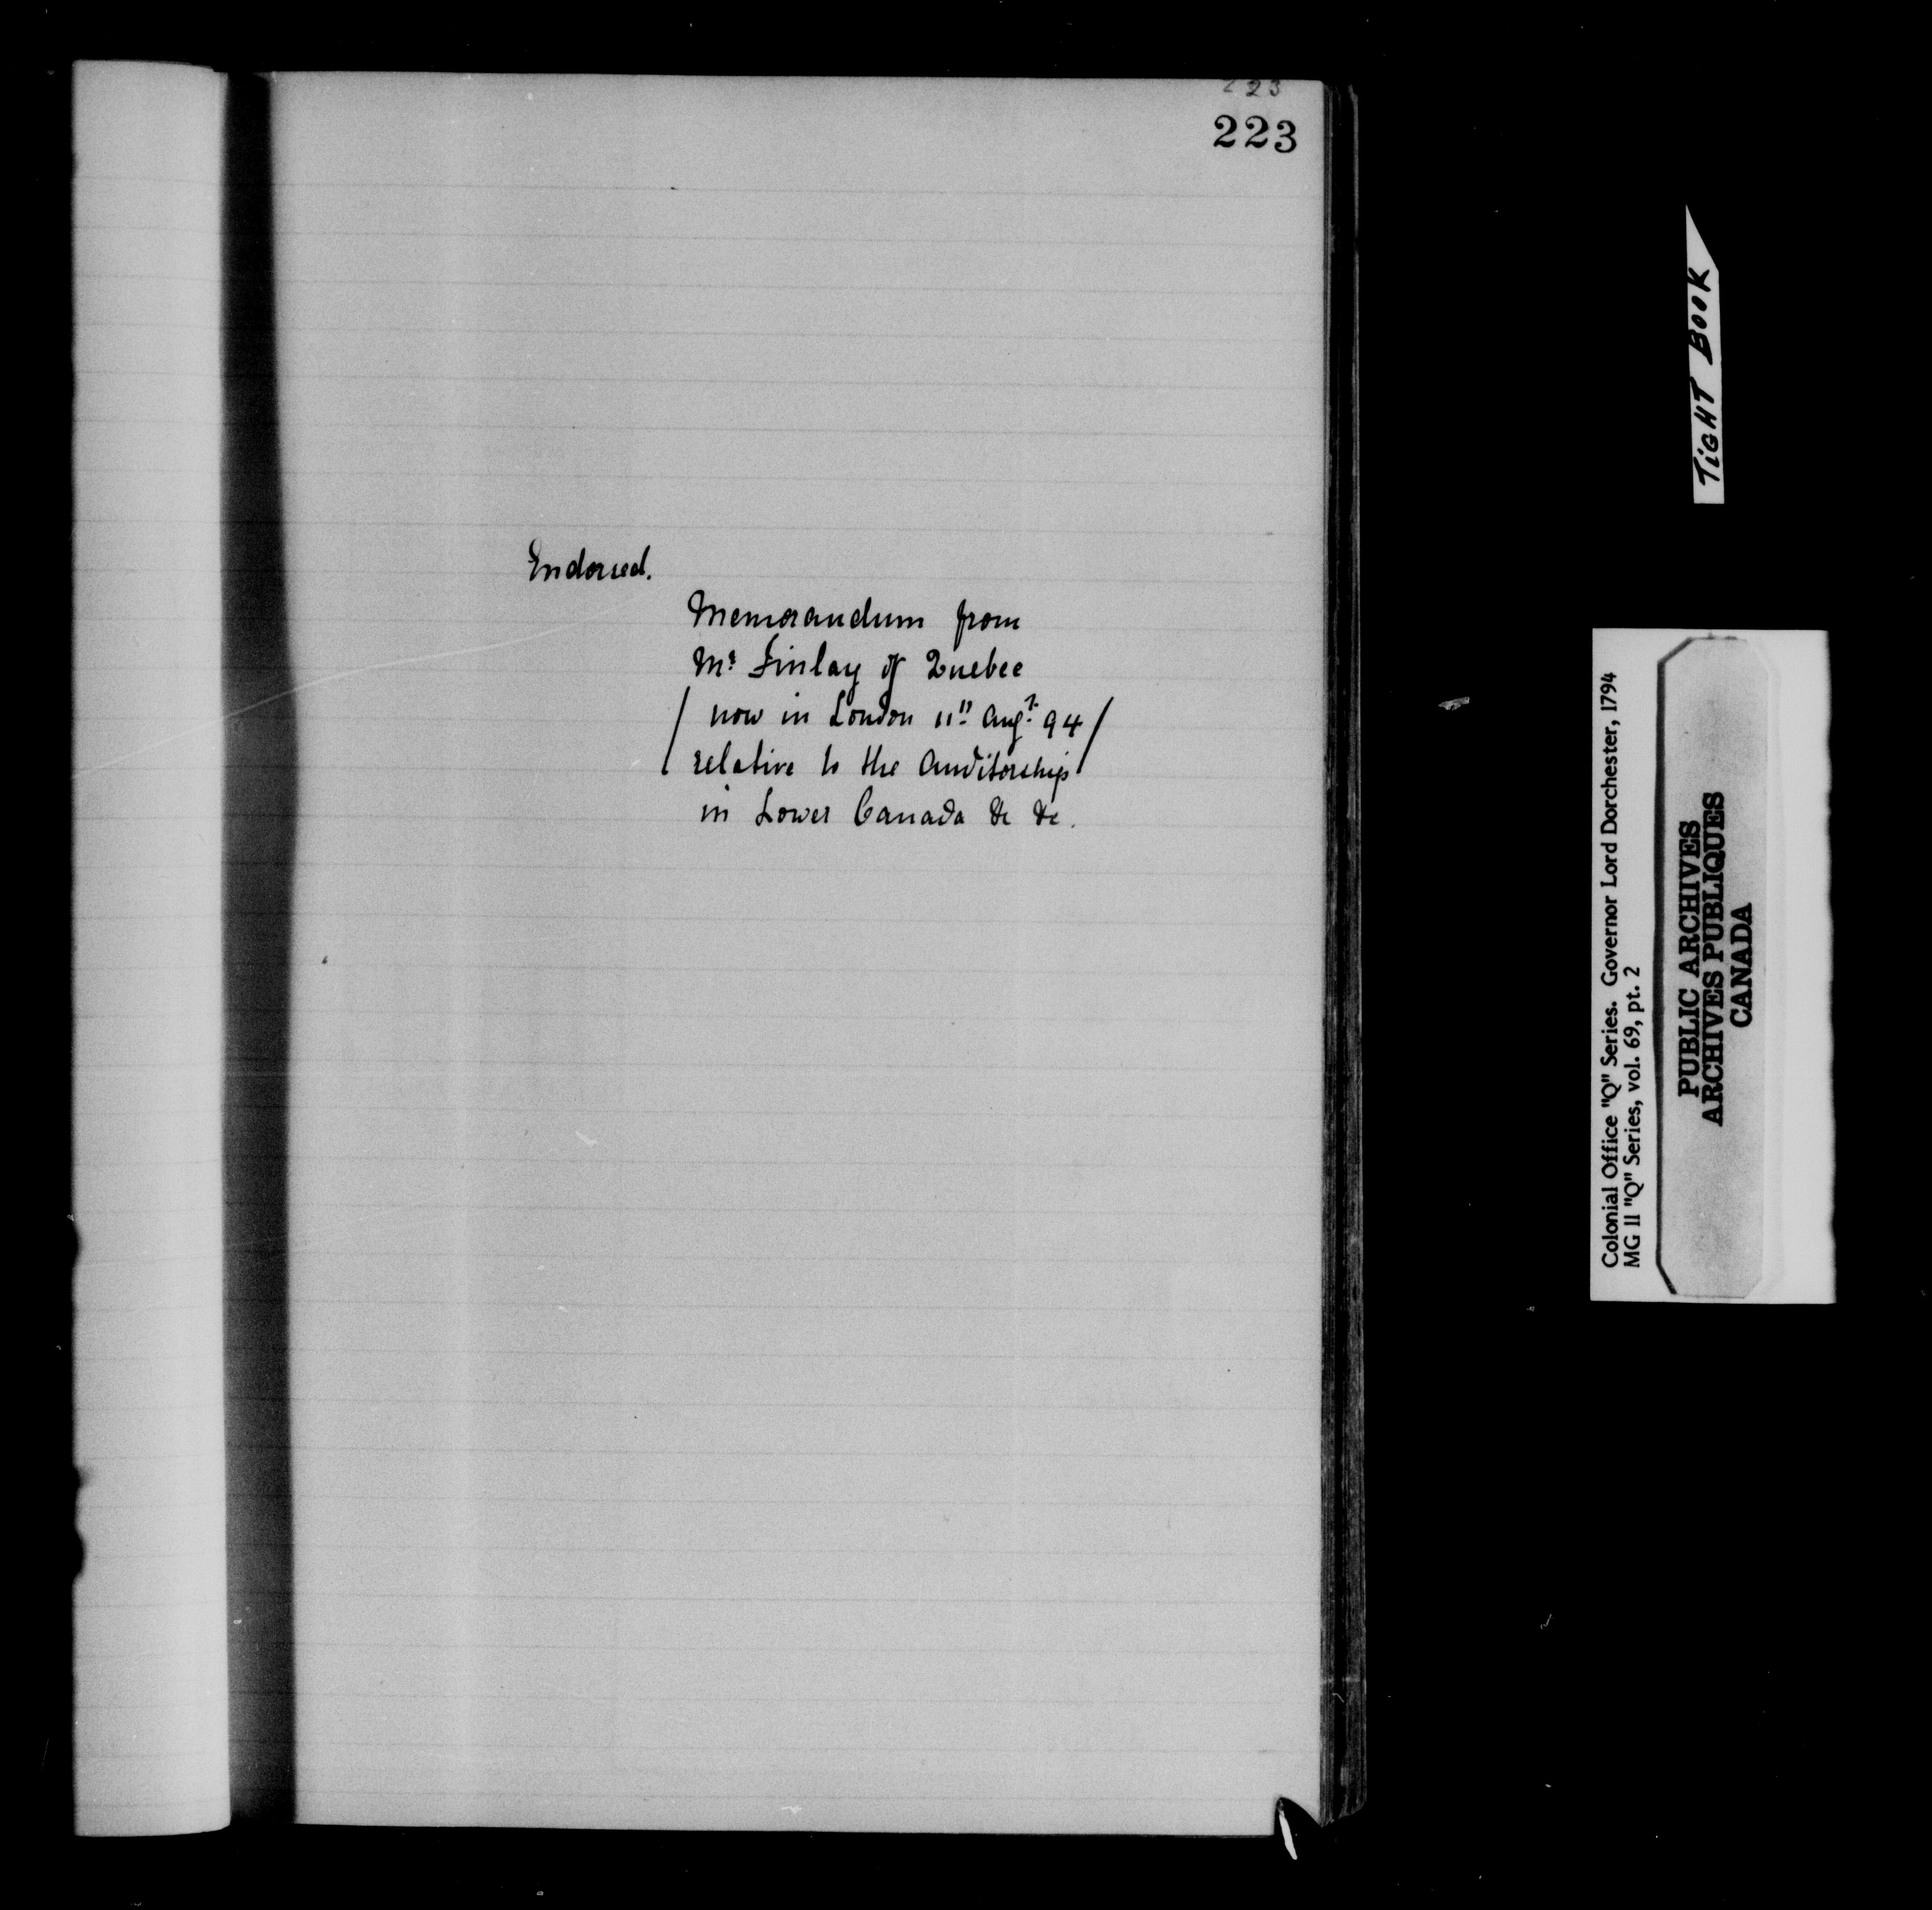 223
223
Endorsed.
Memorandum from
Mr. Finlay of Quebec
/ now in London 11th Augt. 94 /
relative to the Auditorship
in Lower Canada &c &c.
TIGHT BOOK
Colonial Office "Q" Series. Governor Lord Dorchester, 1794
MG 11 "Q" Series, vol. 69, pt. 2
PUBLIC ARCHIVES
ARCHIVES PUBLIQUES
CANADA